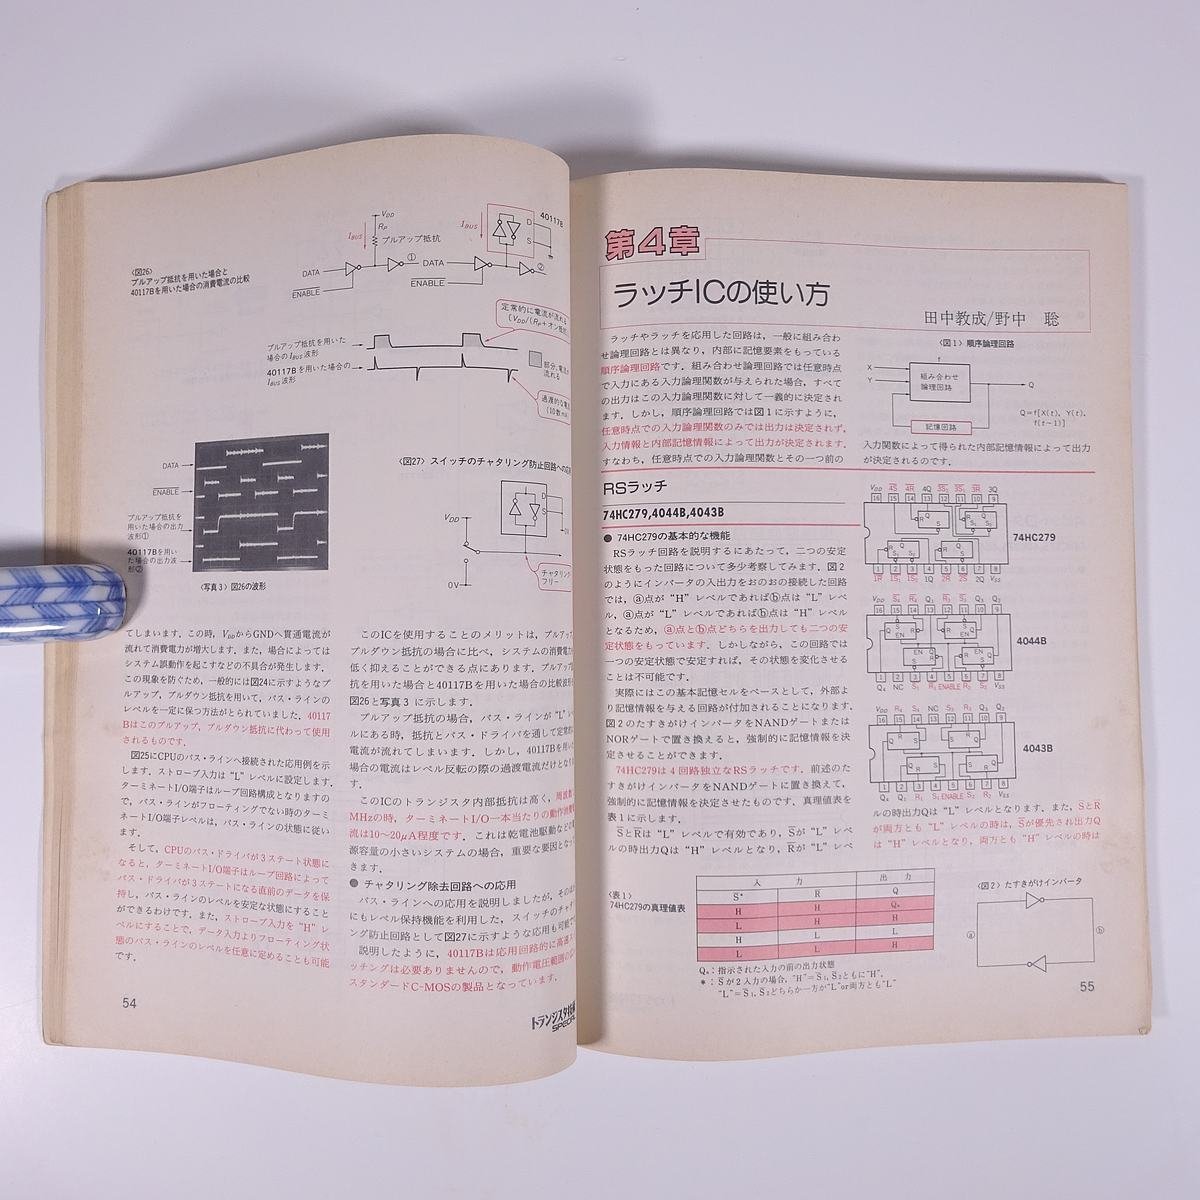 〈図26〉
プルアップ抵抗を用いた場合と
40117Bを用いた場合の消費電流の比較
VDD
IBUS
RP
プルアップ抵抗
DATA
ENABLE
①
IBUS
40117B
D
S
DATA
ENABLE
②
定常的に電流が流れる
(VDD/(RP+オン抵抗
プルアップ抵抗を用いた
場合のIBUS波形
40117Bを用いた場合の
IBUS波形
部分,電流
流れる
過渡的な電
(10数m
DATA
ENABLE
プルアップ抵抗を
用いた場合の出力
波形①
40117Bを用い
た場合の出力波
形②
〈写真3〉図26の波形
〈図27〉スイッチのチャタリング防止回路への応用
VDD
0V
D
S
チャタリング
フリー
てしまいます.この時,VDDからGNDへ貫通電流が
流れて消費電力が増大します.また,場合によっては
システム誤動作を起こすなどの不具合が発生します.
この現象を防ぐため,一般的には図24に示すようなプ
ルアップ,プルダウン抵抗を用いて,バス・ラインの
レベルを一定に保つ方法がとられていました.40117
Bはこのプルアップ,プルダウン抵抗に代わって使用
されるものです.
図25にCPUのバス・ラインへ接続された応用例を示
します.ストローブ入力は“L”レベルに設定します.
ターミネートI/O端子はループ回路構成となりますの
で,バス・ラインがフローティングでない時のターミ
ネートI/O端子レベルは,バス・ラインの状態に従い
ます.
そして,CPUのバス・ドライバが3ステート状態に
なると,ターミネートI/O端子はループ回路によって
バス・ドライバが3ステートになる直前のデータを保
持し,バス・ラインのレベルを安定な状態にすること
ができるわけです.また,ストローブ入力を“H”レ
ベルにすることで,データ入力よりフローティング状
態のバス・ラインのレベルを任意に定めることも可能
です.
54
このICを使用することのメリットは,プルアップ
プルダウン抵抗の場合に比べ,システムの消費電力
低く抑えることができる点にあります.プルアップ抵
抗を用いた場合と40117Bを用いた場合の比較波形
図26と写真3に示します.
プルアップ抵抗の場合,バス・ラインが“L”レ
ルにある時,抵抗とバス・ドライバを通して定常的
電流が流れてしまいます.しかし,40117Bを用い
場合の電流はレベル反転の際の過渡電流だけとなり
す.
このICのトランジスタ内部抵抗は高く,周波数
MHzの時,ターミネートI/O一本当たりの動作消費電
流は10～20μA程度です.これは乾電池駆動などの
源容量の小さいシステムの場合,重要な要因となっ
きます.
● チャタリング除去回路への応用
バス・ラインへの応用を説明しましたが,そのほか
にもレベル保持機能を利用した,スイッチのチャタ
ング防止回路として図27に示すような応用も可能で
説明したように,40117Bは応用回路的に高速ス
ッチングは必要ありませんので,動作電圧範囲の広
スタンダードC-MOSの製品となっています.
トランジスタ技術
SPECIAL
第4章
ラッチICの使い方
田中教成/野中 聡
ラッチやラッチを応用した回路は,一般に組み合わ
せ論理回路とは異なり,内部に記憶要素をもっている
順序論理回路です.組み合わせ論理回路では任意時点
で入力にある入力論理関数が与えられた場合,すべて
の出力はこの入力論理関数に対して一義的に決定され
ます.しかし,順序論理回路では図1に示すように,
任意時点での入力論理関数のみでは出力は決定されず,
入力情報と内部記憶情報によって出力が決定されます.
すなわち,任意時点での入力論理関数とその一つ前の
〈図1〉順序論理回路
f
X
Y
組み合わせ
論理回路
Q
記憶回路
Q=f[X(t), Y(t),
f(t-1)]
入力関数によって得られた内部記憶情報によって出力
が決定されるのです.
RSラッチ
74HC279,4044B,4043B
● 74HC279の基本的な機能
RSラッチ回路を説明するにあたって,二つの安定
状態をもった回路について多少考察してみます.図2
のようにインバータの入出力をおのおの接続した回路
では,ⓐ点が“H”レベルであればⓑ点は“L”レベ
ル,ⓐ点が“L”レベルであればⓑ点は“H”レベル
となるため,ⓐ点とⓑ点どちらを出力しても二つの安
定状態をもっています.しかしながら,この回路では
一つの安定状態で安定すれば,その状態を変化させる
ことは不可能です.
実際にはこの基本記憶セルをベースとして,外部よ
り記憶情報を与える回路が付加されることになります.
図2のたすきがけインバータをNANDゲートまたは
NORゲートで置き換えると,強制的に記憶情報を決
定させることができます.
74HC279は4回路独立なRSラッチです.前述のた
すきがけインバータをNANDゲートに置き換えて,
強制的に記憶情報を決定させたものです.真理値表を
表1に示します.
S̅とR̅は“L”レベルで有効であり,S̅が“L”レベ
ルの時出力Qは“H”レベルとなり,R̅が“L”レベ
VDD 4S̅ 4R̅ 4Q 3S̅2 3S̅1 3R̅ 3Q
16 15 14 13 12 11 10 9
1 2 3 4 5 6 7 8
1R̅ 1S̅1 1S̅2 1Q 2R̅ 2S̅ 2Q VSS
74HC279
VDD S̅4 R̅4 Q1 R̅3 S̅3 Q3 Q2
16 15 14 13 12 11 10 9
1 2 3 4 5 6 7 8
Q4 NC S̅1 R̅1 ENABLE R̅2 S̅2 VSS
4044B
VDD R4 S4 NC S3 R3 Q3 Q2
16 15 14 13 12 11 10 9
1 2 3 4 5 6 7 8
Q4 Q1 R1 S1 ENABLE S2 R2 VSS
4043B
ルの時出力Qは“L”レベルとなります.また,S̅とR̅
が両方とも“L”レベルの時は,S̅が優先され出力Q
は“H”レベルとなり,両方とも“H”レベルの時は
〈表1〉
74HC279の真理値表
入 力 出 力
S* R Q
H H Qo
L H H
H L L
L L H
Qo:指示された入力の前の出力状態
*:S̅が2入力の場合,“H”=S̅1,S̅2ともに“H”,
“L”=S̅1,S̅2どちらか一方が“L”or両方とも“L”
〈図2〉たすきがけインバータ
ⓐ
ⓑ
55